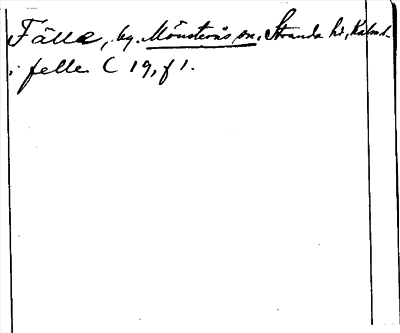 Fälle, by. Mönsterås sn, Stranda hd, Kalm. l.
i felle C 19, f 1.